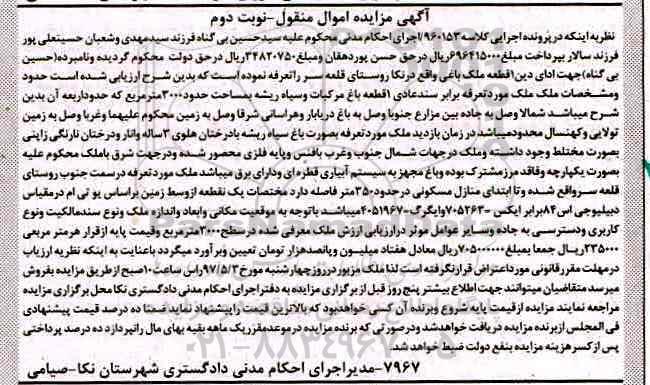 آگهی مزایده اموال منقول-نوبت دوم
نظربه اینکه در پرونده اجرایی کلاسه ۹۶۰۱۵۳/اجرای احکام مدنی محکوم علیه سیدحسین بی گناه فرزند سیدمهدی وشعبان حسینعلی پور
فرزند سالار بپرداخت مبلغ۶۹۶۴۱۵۰۰۰ریال در حق حسن پوردهقان ومبلغ۳۴۸۲۰۷۵۰ریال در حق دولت محکوم گردیده ونامبرده(حسین
بی گناه)جهت ادای دین۱قطعه ملک باغی واقع درنکا روستای قلعه سر راتعرفه نموده است که بدین شرح ارزیابی شده است حدود
ومشخصات ملک ملک موردتعرفه برابر سندعادی ۱قطعه باغ مرکبات وسیاه ریشه بمساحت حدود۳۰۰۰مترمربع که حدوداربعه آن بدین
شرح میباشد شمالا وصل به جاده بین مزارع جنوبا وصل به باغ دریابار وهراسانی شرقا وصل به زمین محکوم علیهما وغربا وصل به زمین
تولایی وکهنسال محدودمیباشد در زمان بازدید ملک موردتعرفه بصورت باغ سیاه ریشه بادرختان هلوی ۳ساله وانار ودرختان نارنگی ژاپنی
بصورت مختلط وجود داشته وملک درجهات شمال جنوب وغرب بافنس وپایه فلزی محصور شده ودرجهت شرق باملک محکوم علیه
بصورت یکپارچه وفاقد مرزمشترک بوده وباغ مجهز به سیستم آبیاری قطره ای ودارای برق میباشد ملک موردتعرفه درسمت جنوب روستای
قلعه سرواقع شده وتا ابتدای منازل مسکونی درحدود۳۵۰متر فاصله دارد مختصات یک نقطعه ازوسط زمین براساس یو تی ام درمقیاس
دبیلیوجی اس۸۴برابر ایکس =۷۰۵۲۶۳وایگرگ=۴۰۵۱۹۶۷میباشد باتوجه به موقعیت مکانی وابعاد واندازه ملک ونوع سندمالکیت ونوع
کاربری ودسترسی به جاده وسایر عوامل موثر درارزیابی ارزش ملک معرفی شده در سطح۳۰۰۰مترمربع وقیمت پایه ازقرار هرمتر مربعی
۲۳۵۰۰۰ریال جمعا بمبلغ۷۰۵۰۰۰۰۰۰ریال معادل هفتاد میلیون وپانصدهزار تومان تعیین وبرآورد میگردد باعنایت به اینکه نظریه ارزیاب
درمهلت مقررقانونی مورداعتراض قرارنگرفته است لذا ملک مزبور درروزچهارشنبه مورخ۹۷/۵/۳راس ساعت۱۰صبح ازطریق مزایده بفروش
میرسد متقاضیان میتوانند جهت اطلاع بیشتر پنج روز قبل ازبرگزاری مزایده به دفتراجرای احکام مدنی دادگستری نکا محل برگزاری مزایده
مراجعه نمایند مزایده ازقیمت پایه شروع وبرنده آن کسی خواهدبود که بالاترین قیمت راپیشنهاد نماید ضمنا ده درصد قیمت پیشنهادی
فی المجلس ازبرنده مزایده دریافت خواهدشد ودرصورتی که برنده مزایده درموعدمقرریک ماهه بقیه بهای مال رانپردازد ده درصد پرداختی
پس از کسر هزینه مزایده بنفع دولت ضبط خواهد شد.
۷۹۶۷-مدیراجرای احکام مدنی دادگستری شهرستان نکا-صیامی
۰۲۱-۸۸۳۴۹۶۷۰-۵